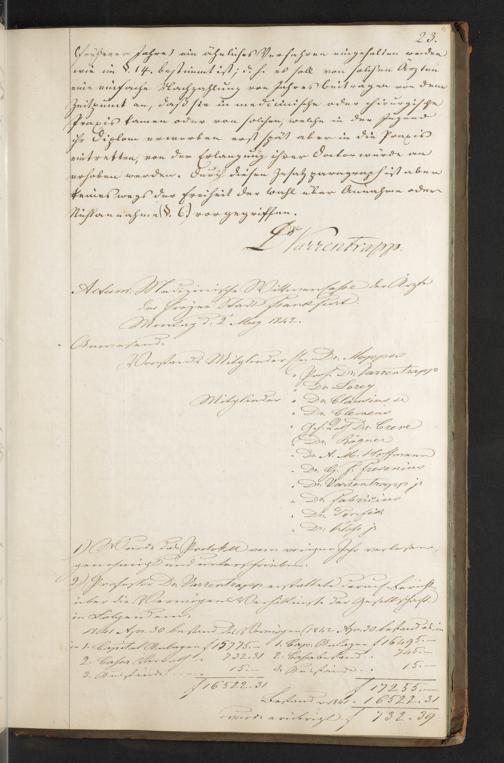 23.
früherer Jahre) ein ähnliches Verfahren eingehalten werden
wie im §. 14. bestimmt ist; d. h. es soll von solchen Ärzten
eine einfache Nachzahlung von Jahresbeiträgen von dem
Zeitpunkt an, daß sie in medicinische oder chirurgische
Praxis kamen oder von solchen, welche in der Jugend
ihr Diplom erworben erst spät aber in die Praxis
eintretten, von der Erlangung ihrer Doctorwürde an
erhoben werden. Durch diesen Zusatzparagraph ist aber
keineswegs der Freiheit der Wahl über Annahme oder
Nichtannahme (§. 6) vorgegriffen.
Dr Varrentrapp
Actum. Medizinische Wittwenkasse der Ärzte
der freien Stadt Frankfurt
Montag d. 2 May 1842.
Anwesend.
Vorstands Mitglieder Dr. Mappes
" Prof. Dr. Varrentrapp
" Dr. Lorey
Mitglieder " Dr. Clausius
" Dr. Clemens
" Dr. Creve
" Dr.
" Dr. A. M. Hoffmann
" Dr. G. F. Fresenius
" Dr. Varrentrapp jr
" Dr. Fabricius
" Dr. Ponfick
" Dr. jr
1) Wurde das Protokoll vom vorigen Jahr verlesen,
genehmigt und unterschrieben.
2) Professor Dr. Varrentrapp erstattete Bericht
über die Vermögens Verhältnisse der Gesellschaft
in Folgendem.
1841 Apr. 30 bestand das Vermögen 1842 Apr. 30 bestand
in 1. Capital Anlagen f 15775.— 1. Cap. Anlagen f 16495.—
2. Cassa 732.31 2. Cassabestand 745.—
3. Ausstände 15.— 3. Ausstände 15.—
f 16522.31 f 17255.—
Bestand v. 1841 16522.31
f 732.39